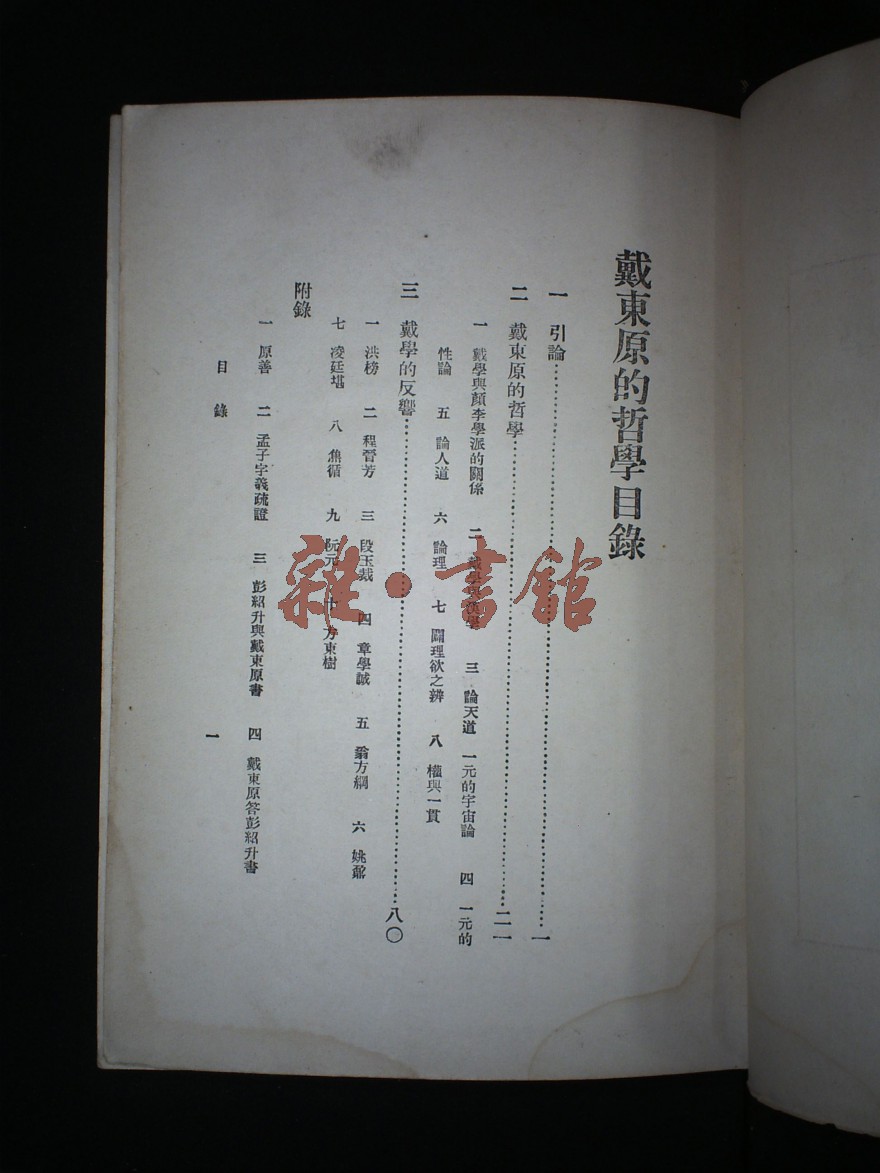 戴東原的哲學目錄
一 引論……一
二 戴東原的哲學……二一
一 戴學與顏李學派的關係 二 戴學與漢學 三 論天道 一元的宇宙論 四 一元的
性論 五 論人道 六 論理 七 闢理欲之辨 八 權與一貫
三 戴學的反響……八〇
一 洪榜 二 程晉芳 三 段玉裁 四 章學誠 五 翁方綱 六 姚鼐
七 凌廷堪 八 焦循 九 阮元 十 方東樹
附錄
一 原善 二 孟子字義疏證 三 彭紹升與戴東原書 四 戴東原答彭紹升書
目錄
一
雜·書館